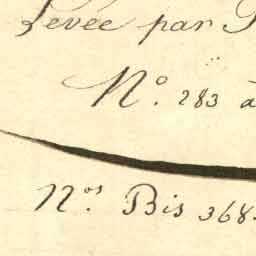 Levée par
N.º 283 à
N.ºs Bis 368.